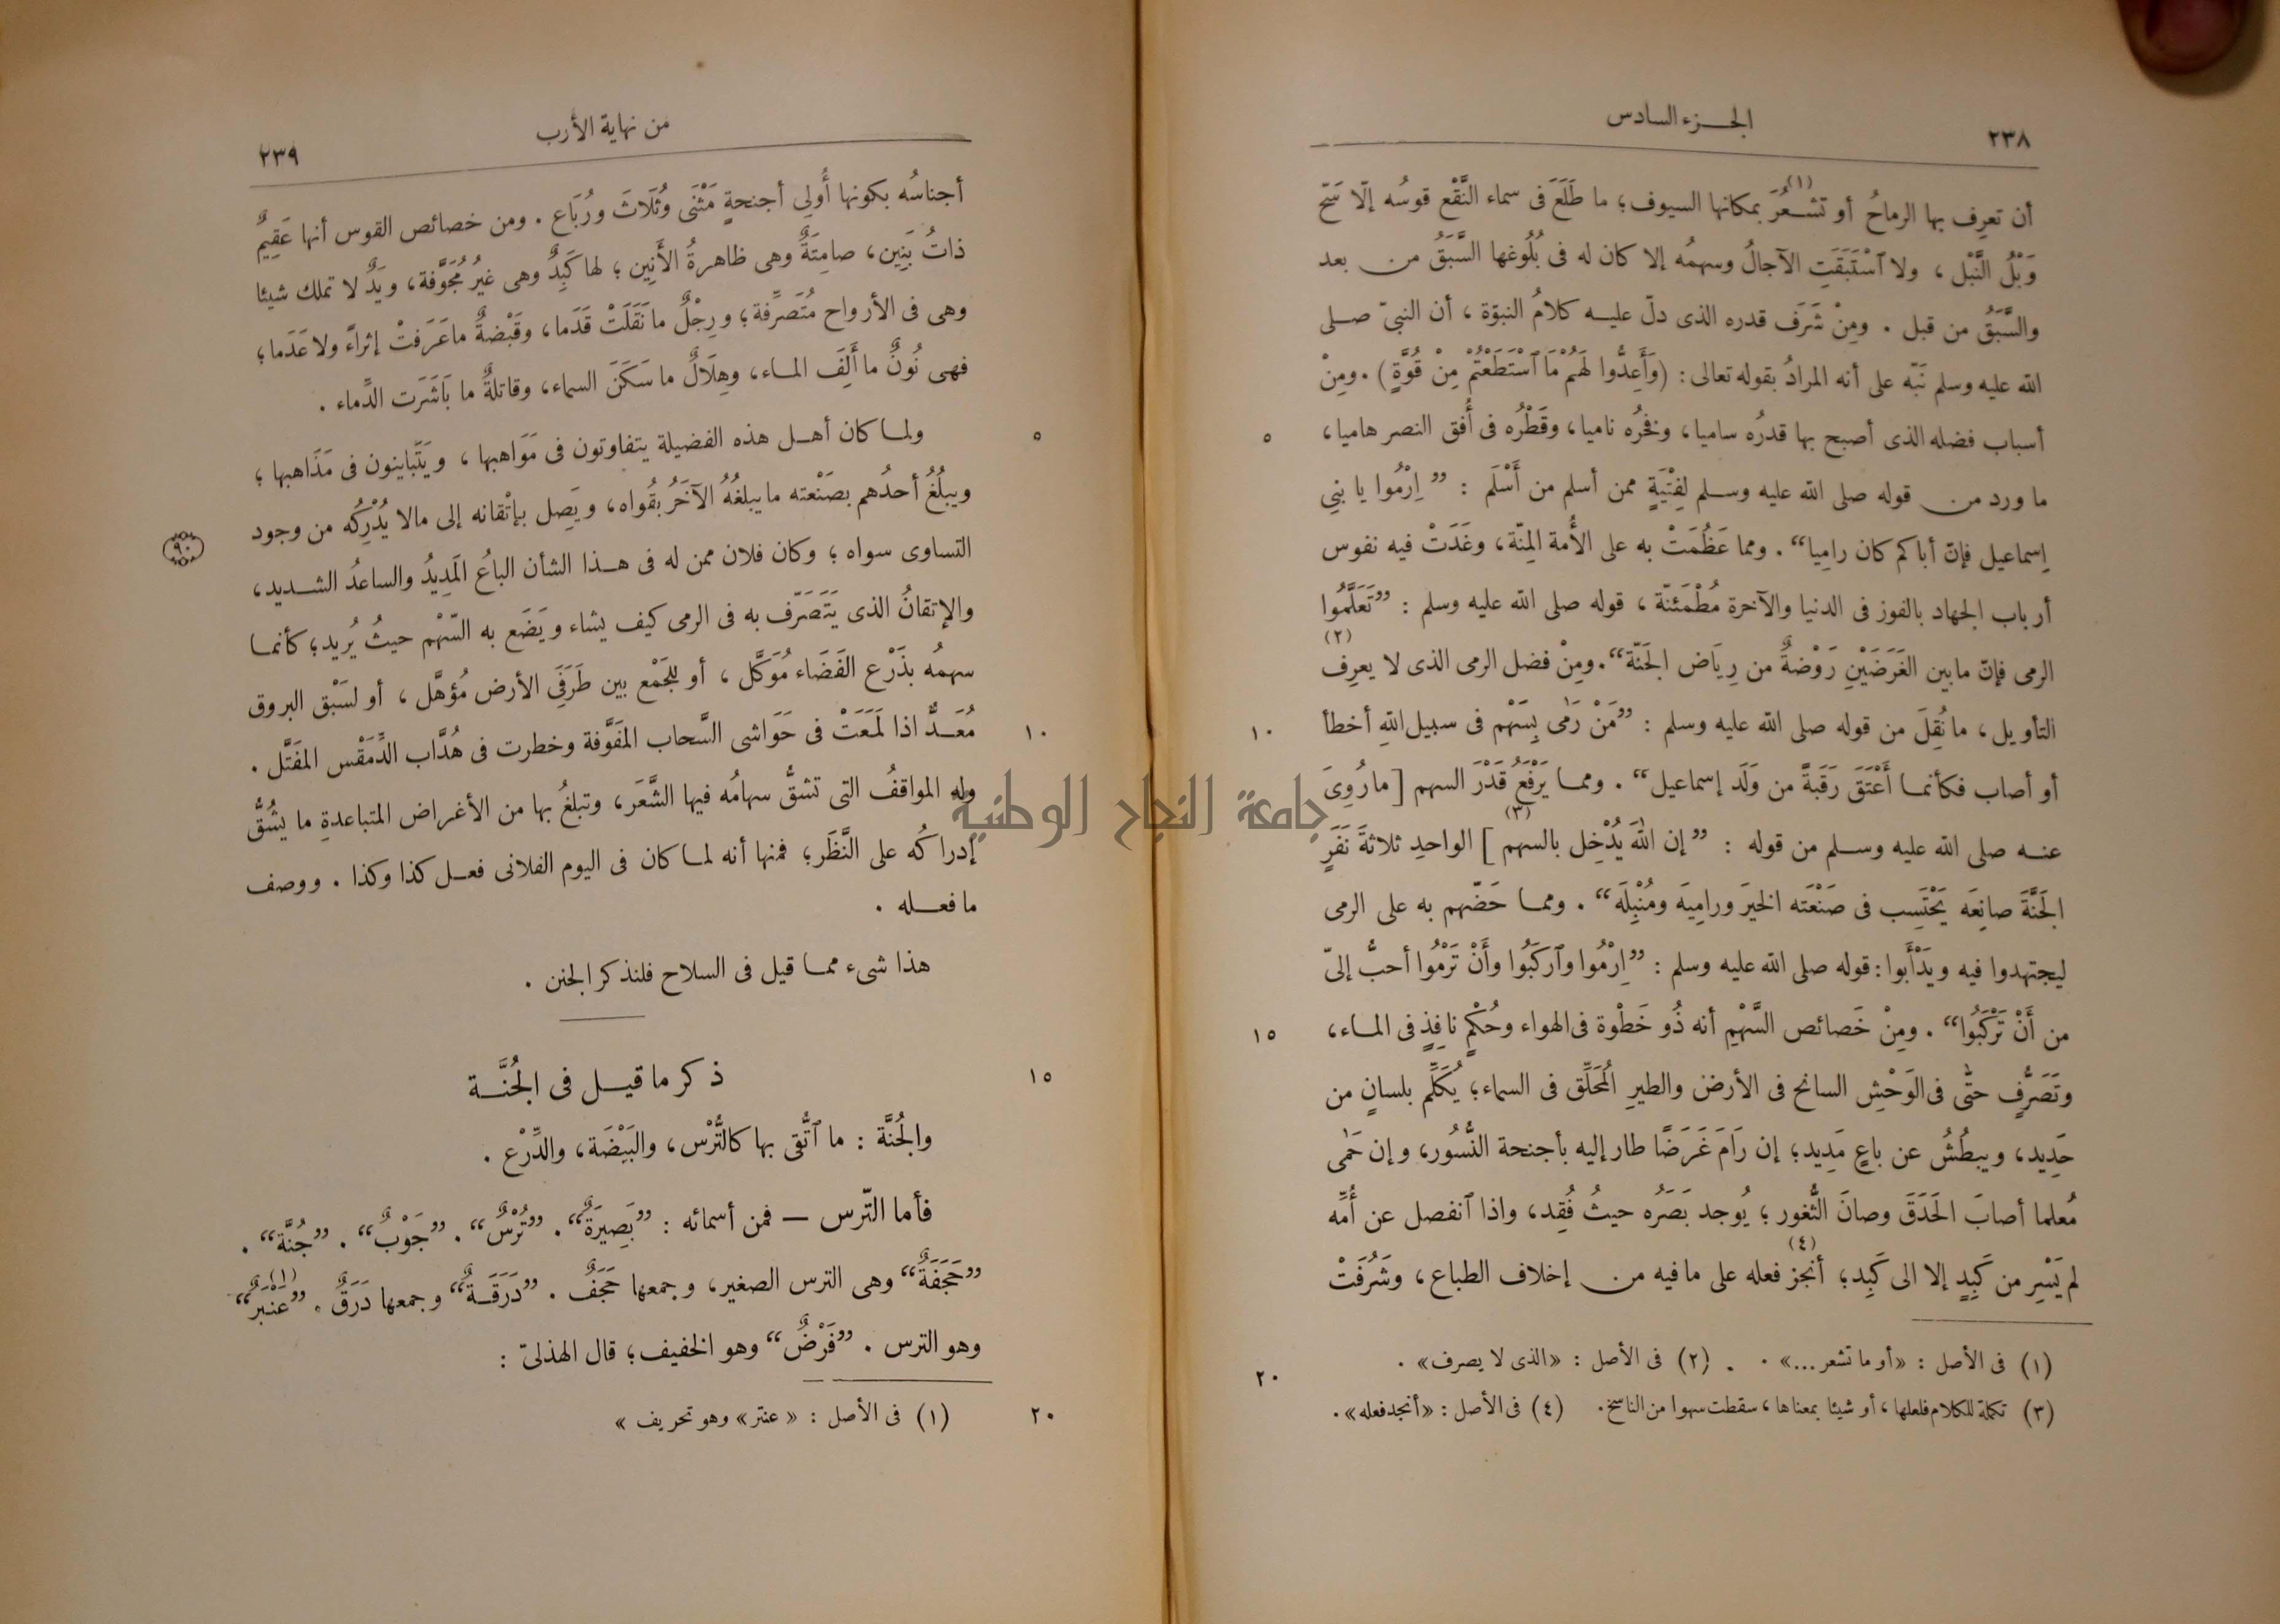 ٢٣٨
الجـزء السادس
أن تعرِف بها الرماحُ أو تَشـعُرَ(١) بمكانها السيوف؛ ما طَلَعَ فى سماء النَّقْع قوسُه إلّا سَحَّ
وَبْلُ النَّبْل، ولا ٱسْتَبَقَتِ الآجالُ وسهمُه إلا كان له فى بُلُوغها السَّبَقُ من بعد
والسَّبَقُ من قبل. ومِنْ شَرَف قدره الذى دلّ عليـه كلامُ النبوّة، أن النبىّ صلى
الله عليه وسلم نَبّه على أنه المرادُ بقوله تعالى: (وَأَعِدُّوا لَهُمْ مَا ٱسْتَطَعْتُمْ مِنْ قُوَّةٍ). ومِنْ
أسباب فضله الذى أصبح بها قدرُه ساميا، وفخرُه ناميا، وقَطْرُه فى أُفق النصر هاميا،
٥
ما ورد من قوله صلى الله عليه وسلم لِفِتْيَةٍ ممن أسلم من أَسْلَم : ”اِرْمُوا يا بنِى
إسماعيل فإنّ أباكم كان رامِيا“. ومما عَظُمَتْ به على الأُمة المِنّة، وغَدَتْ فيه نفوس
أرباب الجهاد بالفوز فى الدنيا والآخرة مُطْمَئنّة، قوله صلى الله عليه وسلم : ”تَعَلَّمُوا
الرمى فإنّ ما بين الغَرَضَيْنِ رَوْضةٌ من رِيَاض الجَنّة“. ومِنْ فضل الرمى الذى لا يعرِف(٢)
التأويل، ما نُقِلَ من قوله صلى الله عليه وسلم : ”مَنْ رَمَى بِسَهْم فى سبيل اللهِ أخطأ
١٠
أو أصاب فكأنمـا أَعْتَقَ رَقَبَةً من وَلَد إسماعيل“. وممـا يَرْفَعُ قَدْرَ السهم [ما رُوِىَ
عنـه صلى الله عليه وسلم من قوله : ”إن اللهَ يُدْخِل بالسهم(٣)] الواحدِ ثلاثةَ نَفَرٍ
الجَنَّةَ صانِعَه يَحْتَسِب فى صَنْعَته الخيرَ ورامِيَه ومُنْبِلَه“. وممـا حَضّهم به على الرمى
ليجتهدوا فيه ويَدْأَبوا: قوله صلى الله عليه وسلم : ”اِرْمُوا وٱركَبُوا وأَنْ تَرْمُوا أحبُّ إلىّ
من أَنْ تَرْكَبُوا“. ومِنْ خَصائص السَّهْمِ أنه ذُو خَطْوة فى الهواء وحُكْمٍ نافِذٍ فى المـاء،
١٥
وتَصَرُّفٍ حتّى فى الوَحْشِ السانح فى الأرض والطيرِ المُحَلِّق فى السماء؛ يُكَلِّم بلسانٍ من
حَدِيد، ويبطُشُ عن باعٍ مَدِيد؛ إن رَامَ غَرَضًا طار إليه بأجنحة النُّسُور، وإن حَمَى
مُعلما أصابَ الحَدَقَ وصانَ الثُّغور؛ يُوجد بَصَرُه حيثُ فُقِد، واذا ٱنفصل عن أُمّه
لم يَسْرِ من كَبِدٍ إلا الى كَبِد؛ أنجز(٤) فعله على ما فيه من إخلاف الطباع، وشَرُفَتْ
(١) فى الأصل : «أو ما تشعر...» . (٢) فى الأصل : «الذى لا يصرف» .
٢٠
(٣) تكملة للكلام فلعلها، أو شيئا بمعناها، سقطت سهوا من الناسخ. (٤) فى الأصل : «أنجد فعله» .
من نهاية الأرب
٢٣٩
أجناسُه بكونها أُولِى أجنحةٍ مَثْنَى وثُلَاثَ ورُبَاع. ومن خصائص القوس أنها عَقِيمٌ
ذاتُ بَنِين، صامِتَةٌ وهى ظاهرةُ الأَنِين؛ لها كَبِدٌ وهى غيرُ مُجَوَّفة، ويَدٌ لا تملك شيئا
وهى فى الأرواح مُتَصَرِّفة؛ ورِجْلٌ ما نَقَلَتْ قَدَما، وقَبْضةٌ ما عَرَفتْ إثراءً ولا عَدَما؛
فهى نُونٌ ما أَلِفَ المـاء، وهِلَالٌ ما سَكَنَ السماء، وقاتلةٌ ما بَاشَرَت الدِّماء .
ولمـا كان أهـل هذه الفضيلة يتفاوتون فى مَوَاهبها، ويَتَباينون فى مَذَاهبها؛
٥
ويبلُغُ أحدُهم بصَنْعته ما يبلغُهُ الآخَرُ بقُواه، ويَصِل بإتْقانه إلى مالا يُدْرِكُه من وجود
التساوى سواه؛ وكان فلان ممن له فى هـذا الشأن الباعُ المَدِيدُ والساعدُ الشـديد،
٩٠
والإتقانُ الذى يَتَصَرّف به فى الرمى كيف يشاء ويَضَع به السّهْم حيثُ يُريد؛ كأنمـا
سهمُه بذَرْع الفَضَاء مُوَكَّل، أو بجَمْع بين طَرَفَىِ الأرض مُؤهَّل، أو لسَبْق البروق
مُعَـدٌّ اذا لَمَعَتْ فى حَوَاشى السَّحاب المفَوَّفة وخطرت فى هُدَّاب الدِّمَقْس المفَتَّل .
١٠
وله المواقفُ التى تشقُّ سهامُه فيها الشَّعَر، وتبلغُ بها من الأغراض المتباعدةِ ما يشُقُّ
إدراكُه على النَّظَر؛ فمنها أنه لمـا كان فى اليوم الفلانى فعـل كذا وكذا . ووصف
ما فعـله .
هذا شىء ممـا قيل فى السلاح فلنذكر الجنن .
ذكر ما قيـل فى الجُنَّـة
١٥
والجُنَّة : ما ٱتُّقى بها كالتُّرْس، والبَيْضَة، والدِّرْع .
فأما التّرس — فمن أسمائه : ”بَصِيرَةٌ“. ”تُرْسٌ“. ”جَوْبٌ“. ”جُنَّة“.
”حَجَفَةٌ“ وهى الترس الصغير، وجمعها حَجَفٌ . ”دَرَقَـةٌ“ وجمعها دَرَقٌ . ”عَنْبَرٌ(١)“
وهو الترس . ”فَرْضٌ“ وهو الخفيف؛ قال الهذلىّ :
(١) فى الأصل : «عنتر» وهو تحريف »
٢٠
جامعة النجاح الوطنية